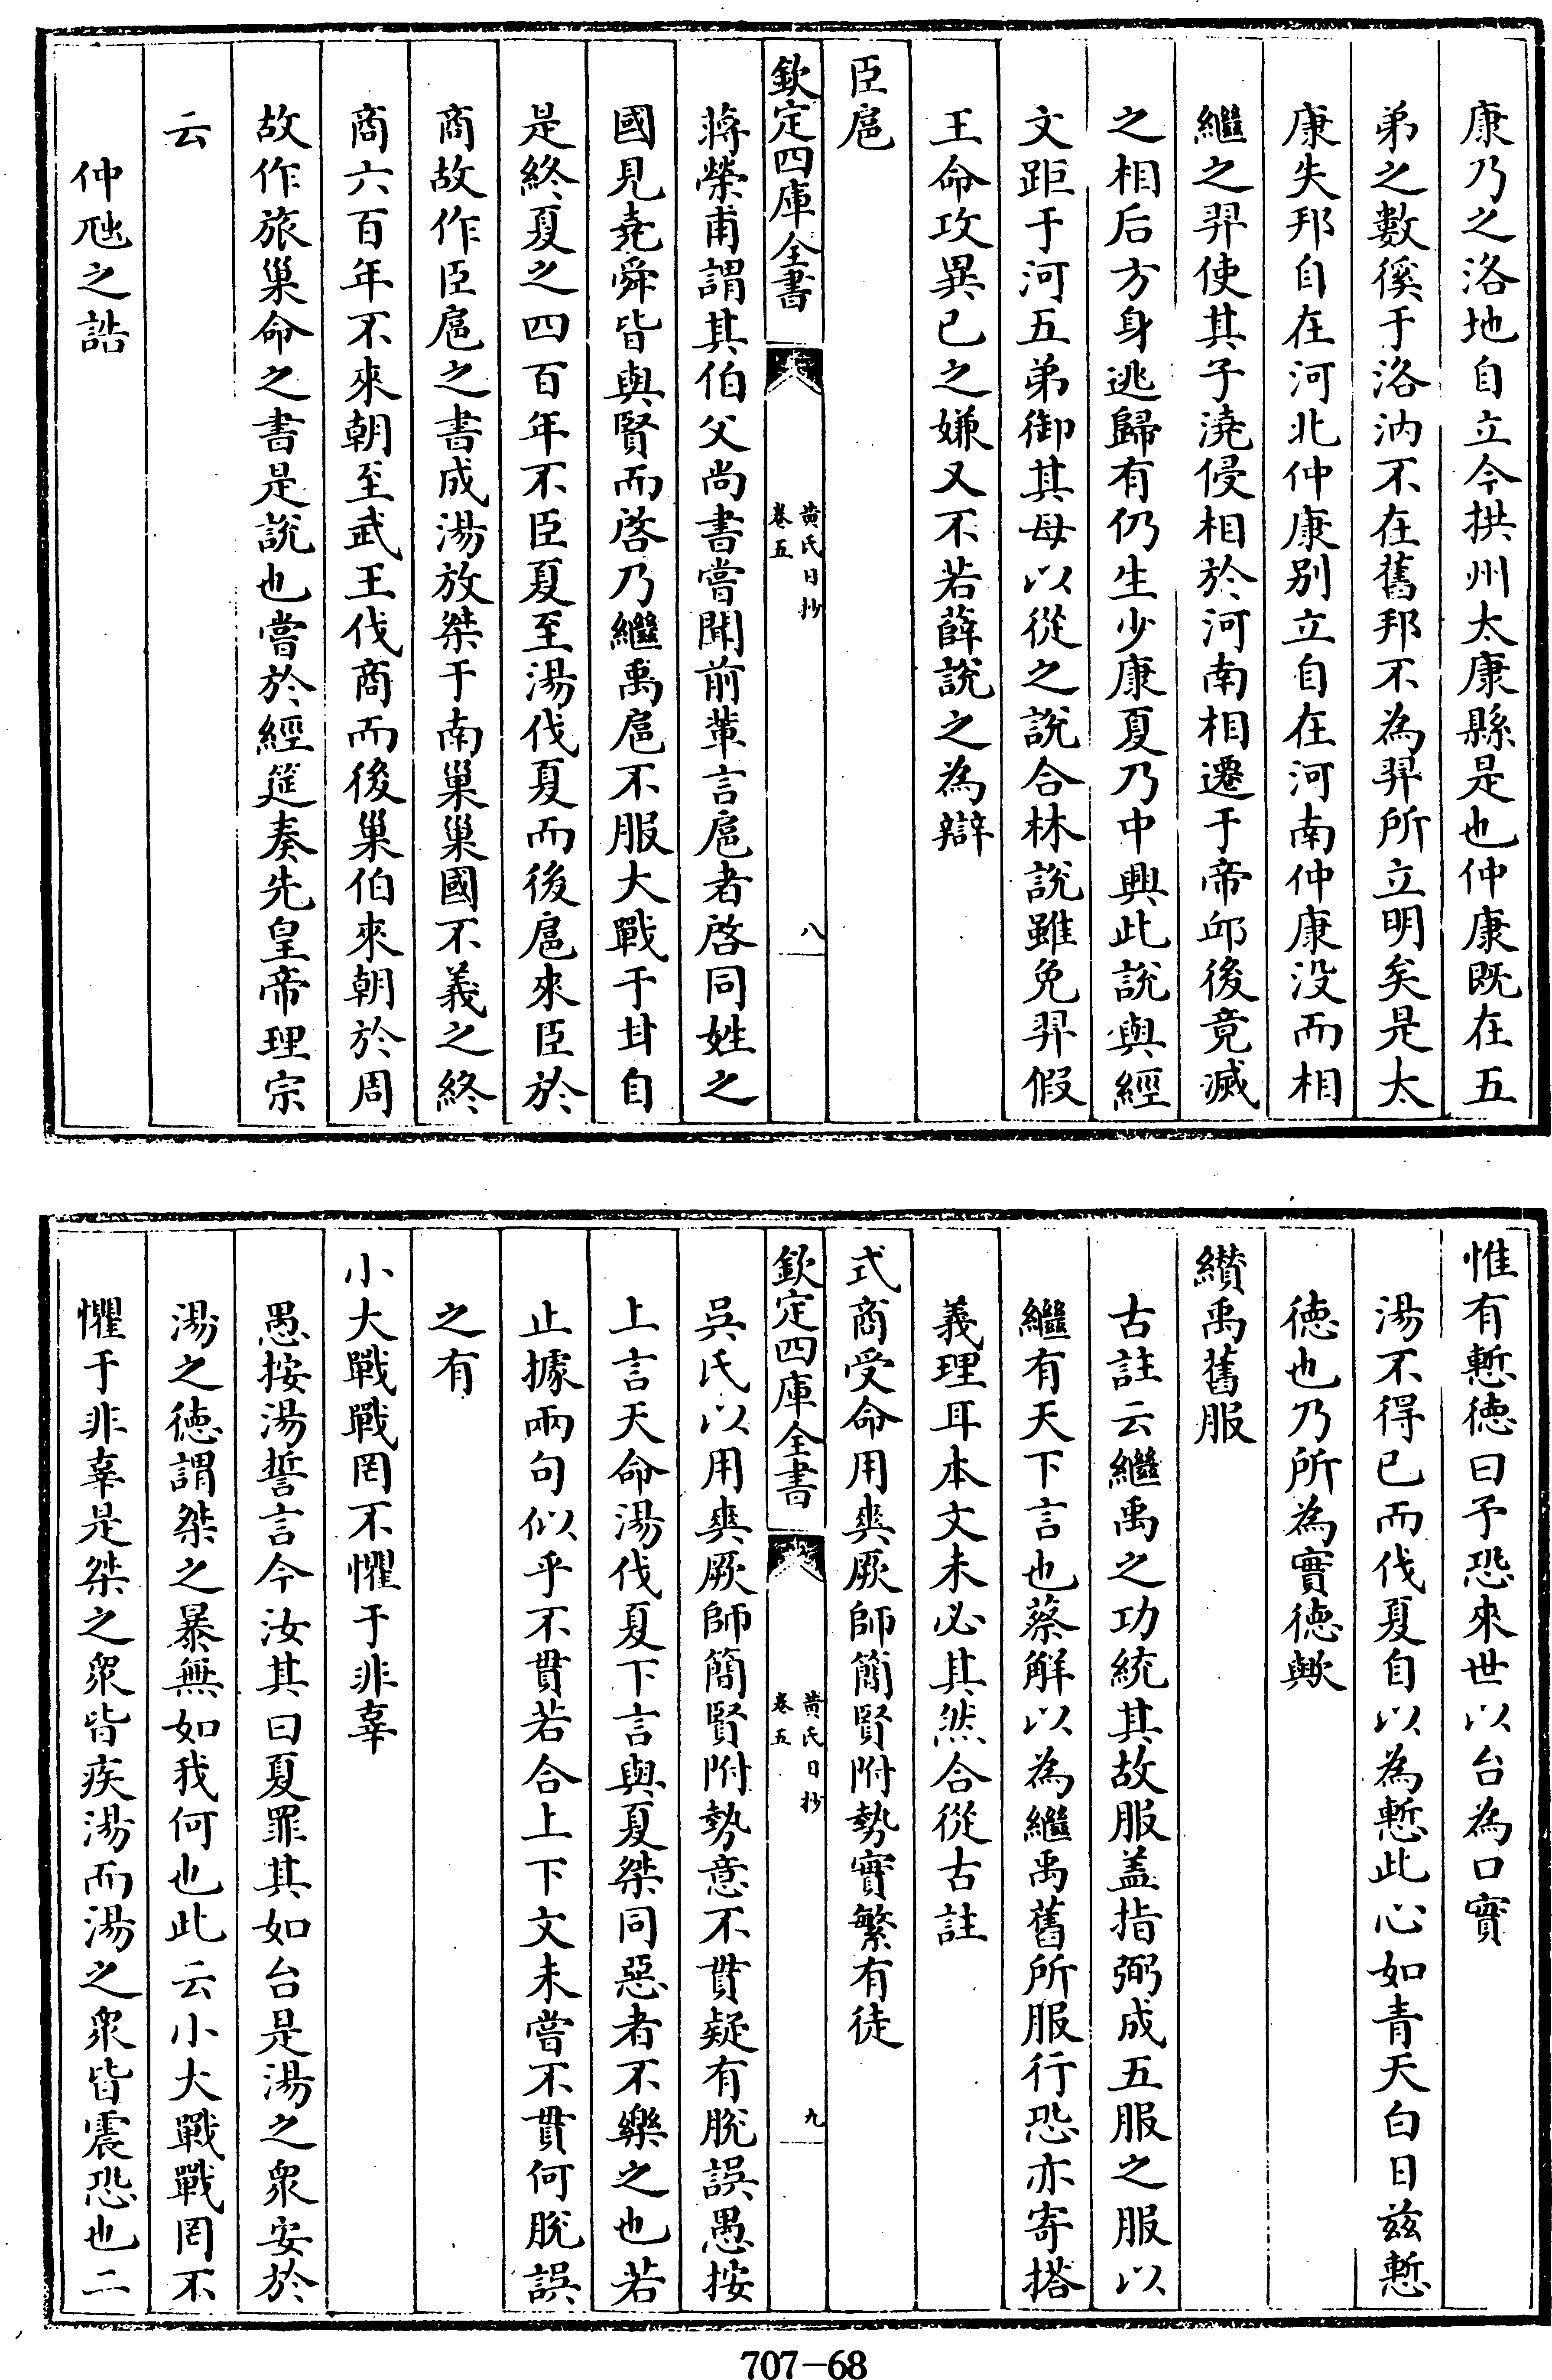 康乃之洛地自立今拱州太康縣是也仲康既在五
弟之數徯于洛汭不在舊邦不為羿所立明矣是太
康失邦自在河北仲康别立自在河南仲康没而相
繼之羿使其子澆侵相於河南相遷于帝邱後竟滅
之相后方身逃歸有仍生少康夏乃中興此說與經
文距于河五弟御其母以從之說合林說雖免羿假
王命攻異已之嫌又不若薛說之為辯
臣扈
欽定四庫全書
黃氏日抄
卷五
八
蔣榮甫謂其伯父尚書嘗聞前輩言扈者啓同姓之
國見堯舜皆與賢而啓乃繼禹扈不服大戰于甘自
是終夏之四百年不臣夏至湯伐夏而後扈來臣於
商故作臣扈之書成湯放桀于南巢巢國不義之終
商六百年不來朝至武王伐商而後巢伯來朝於周
故作旅巢命之書是說也嘗於經筵奏先皇帝理宗
云
仲虺之誥
惟有慙德曰予恐來世以台為口實
湯不得已而伐夏自以為慙此心如青天白日兹慙
德也乃所為實德歟
纉禹舊服
古註云繼禹之功統其故服盖指弼成五服之服以
繼有天下言也蔡解以為繼禹舊所服行恐亦寄搭
義理耳本文未必其然合從古註
式商受命用爽厥師簡賢附勢實繁有徒
欽定四庫全書
黃氏日抄
卷五
九
吳氏以用爽厥師簡賢附勢意不貫疑有脫誤愚按
上言天命湯伐夏下言與夏桀同惡者不樂之也若
止據兩句似乎不貫若合上下文未嘗不貫何脫誤
之有
小大戰戰罔不懼于非辜
愚按湯誓言今汝其曰夏罪其如台是湯之衆安於
湯之德謂桀之暴無如我何也此云小大戰戰罔不
懼于非辜是桀之衆皆疾湯而湯之衆皆震恐也二
707-68